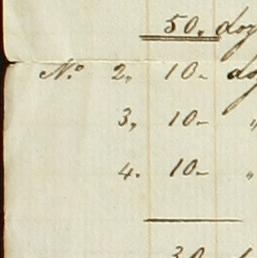 50. doz
No. 2. 10.- doz
3. 10.- "
4. 10.- "
30